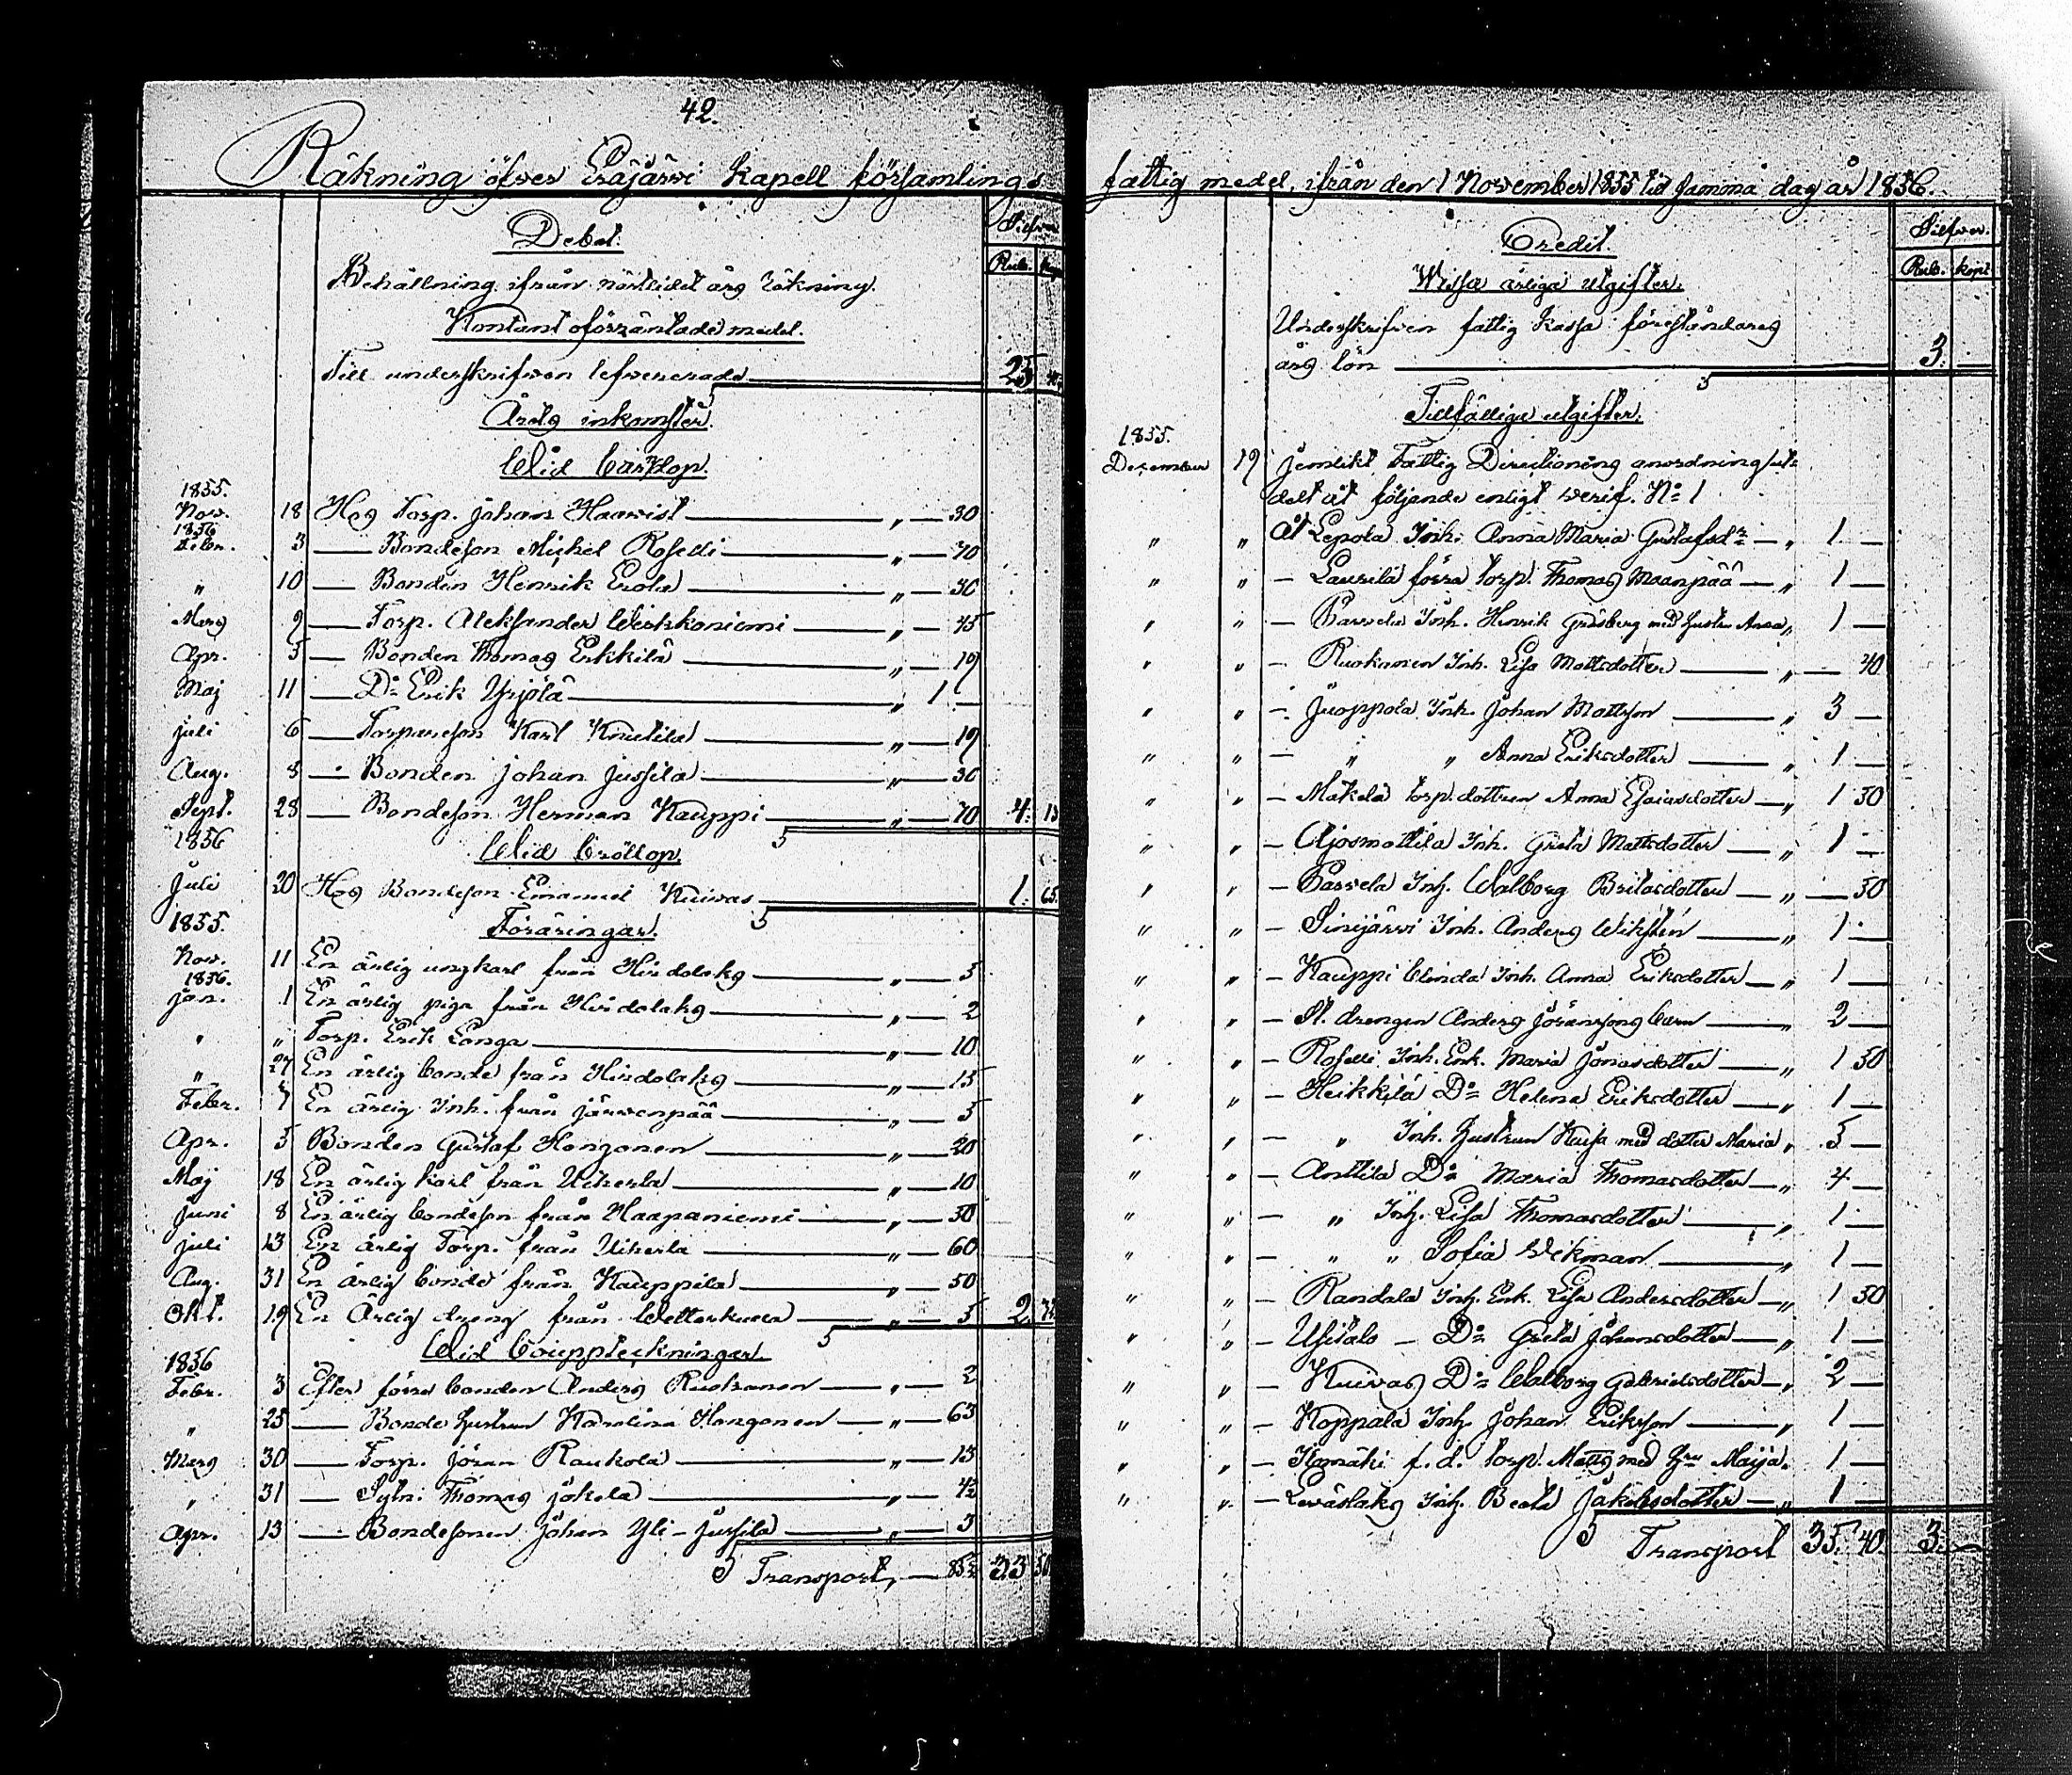 42.
Räkning öfver Eräjärvi Kapell församlings
Debet.
Silfver
Rub. kop
Behållning ifrån nästlidet års räkning.
Kontant oförräntade medel.
Till underskrifven lefvererade 25
Årets inkomster.
Wid barsöp.
1855.
Nov. 18 Hos Torp. Johan Haavist „ — 30
1856
Febr. 3 — Bondeson Michel Roselli „ — 70
„ 10 — Bonden Henrik Erola „ — 36
Mars 9 — Torp. Aleksander Weihkoniemi „ — 45
Apr. 5 — Bonden Thomas Erkkilä „ — 19
Maj 11 — D:o Erik Yrjölä „ 1 —
Juli 6 — Torpareson Karl Knutila „ — 19
Aug. 8 — Bonden Johan Jussila „ — 36
Sept. 28 — Bondeson Herman Kauppi „ — 70 4. 15
1856
Wid bröllop
Juli 20 Hos Bondeson Emanuel Kuivas 1. 65.
1855.
Föräringar.
Nov. 11 En ärlig ungkarl från Hirdolaks „ — 5
1856.
Jan. 1 En ärlig piga från Hirdolaks „ — 2
„ „ Torp. Erik Langa „ — 10
„ 27 En ärlig bonde från Hirdolaks „ — 15
Febr. 7 En ärlig Inh. från Järvenpää „ — 5
Apr. 5 Bonden Gustaf Hongonen „ — 20
Maj 18 En ärlig karl från Uiherla „ — 10
Juni 8 En ärlig bondeson från Haapaniemi „ — 50
Juli 13 En ärlig Torp. från Uiherla „ — 60
Aug. 31 En ärlig bonde från Kauppila „ — 50
Okt. 19 En Ärlig dreng från „ — 5 2.
Wid bouppteckningar.
1856
Febr. 3 Efter förra bonden Anders Ruokonen „ — 2
„ 25 — Bonde hustrun Karolina Hongonen „ — 63
Mars 30 — Torp. Jöran Raukola „ — 13
„ 31 — Sytn. Thomas Jokela „ — 4½
Apr. 13 — Bondesonen Johan Yli-Jussila „ — 3
Transport, — 85½ 33 50
fattig medel, ifrån den 1 November 1855 till samma dag år 1856.
Credit.
Silfver.
Rub. kopi
Wissa årliga utgifter.
Underskrifven fattig kassa föreståndares
års lön 3.
Tillfälliga utgifter.
1855.
December 19 Jemlikt Fattig Directionens anordning ut-
delt åt följande enligt verif. N:o 1
„ „ Åt Lepola Inh. Anna Maria Gustafsd:r — „ 1 —
„ „ — Laurila förra torp. Thomas Maanpää — „ 1 —
„ „ — Parvela Inh. Henrik Gräsberg med hustru Anna „ 1 —
„ „ — Ruokonen Inh. Lisa Mattsdotter „ — 40
„ „ — Juoppola Inh. Johan Mattson „ 3 —
„ „ — „ „ Anna Eriksdotter „ 1 —
„ „ — Mäkelä torp. dottren Anna Esaiasdotter — „ 1 50
„ „ — Ajosmattila Inh. Greta Mattsdotter „ 1 —
„ „ — Parvela Inh. Walborg Britasdotter — „ — 50
„ „ — Sinijärvi Inh. Anders Wiksten „ 1 —
„ „ — Kauppi blinda Inh. Anna Eriksdotter — „ 1 —
„ „ — St. drengen Anders Jöransons barn „ 2 —
„ „ — Roselli Inh. Enk. Maria Jonasdotter „ 1 50
„ „ — Heikkilä D:o Helena Eriksdotter „ 1 —
„ „ — „ Inh. hustrun Kaisa med dotter Maria „ 5 —
„ „ — Anttila D:o Maria Thomasdotter „ 4 —
„ „ — „ Inh. Lisa Thomasdotter „ 1 —
„ „ — „ „ Sofia Wikman „ 1 —
„ „ — Randala Inh. Enk. Lisa Andersdotter — „ 1 50
„ „ — Usitalo — D:o Greta Johansdotter „ 1 —
„ „ — Kuivas D:o Walborg Gabrielsdotter — „ 2 —
„ „ — Koppala Inh. Johan Erikson „ 1 —
„ „ — Hamäki f. d. torp. Matts med h:ru Maija. 1 —
„ „ — Leväslaks Inh. Beata Jakobsdotter — „ 1 —
Transport 35. 40. 3. —